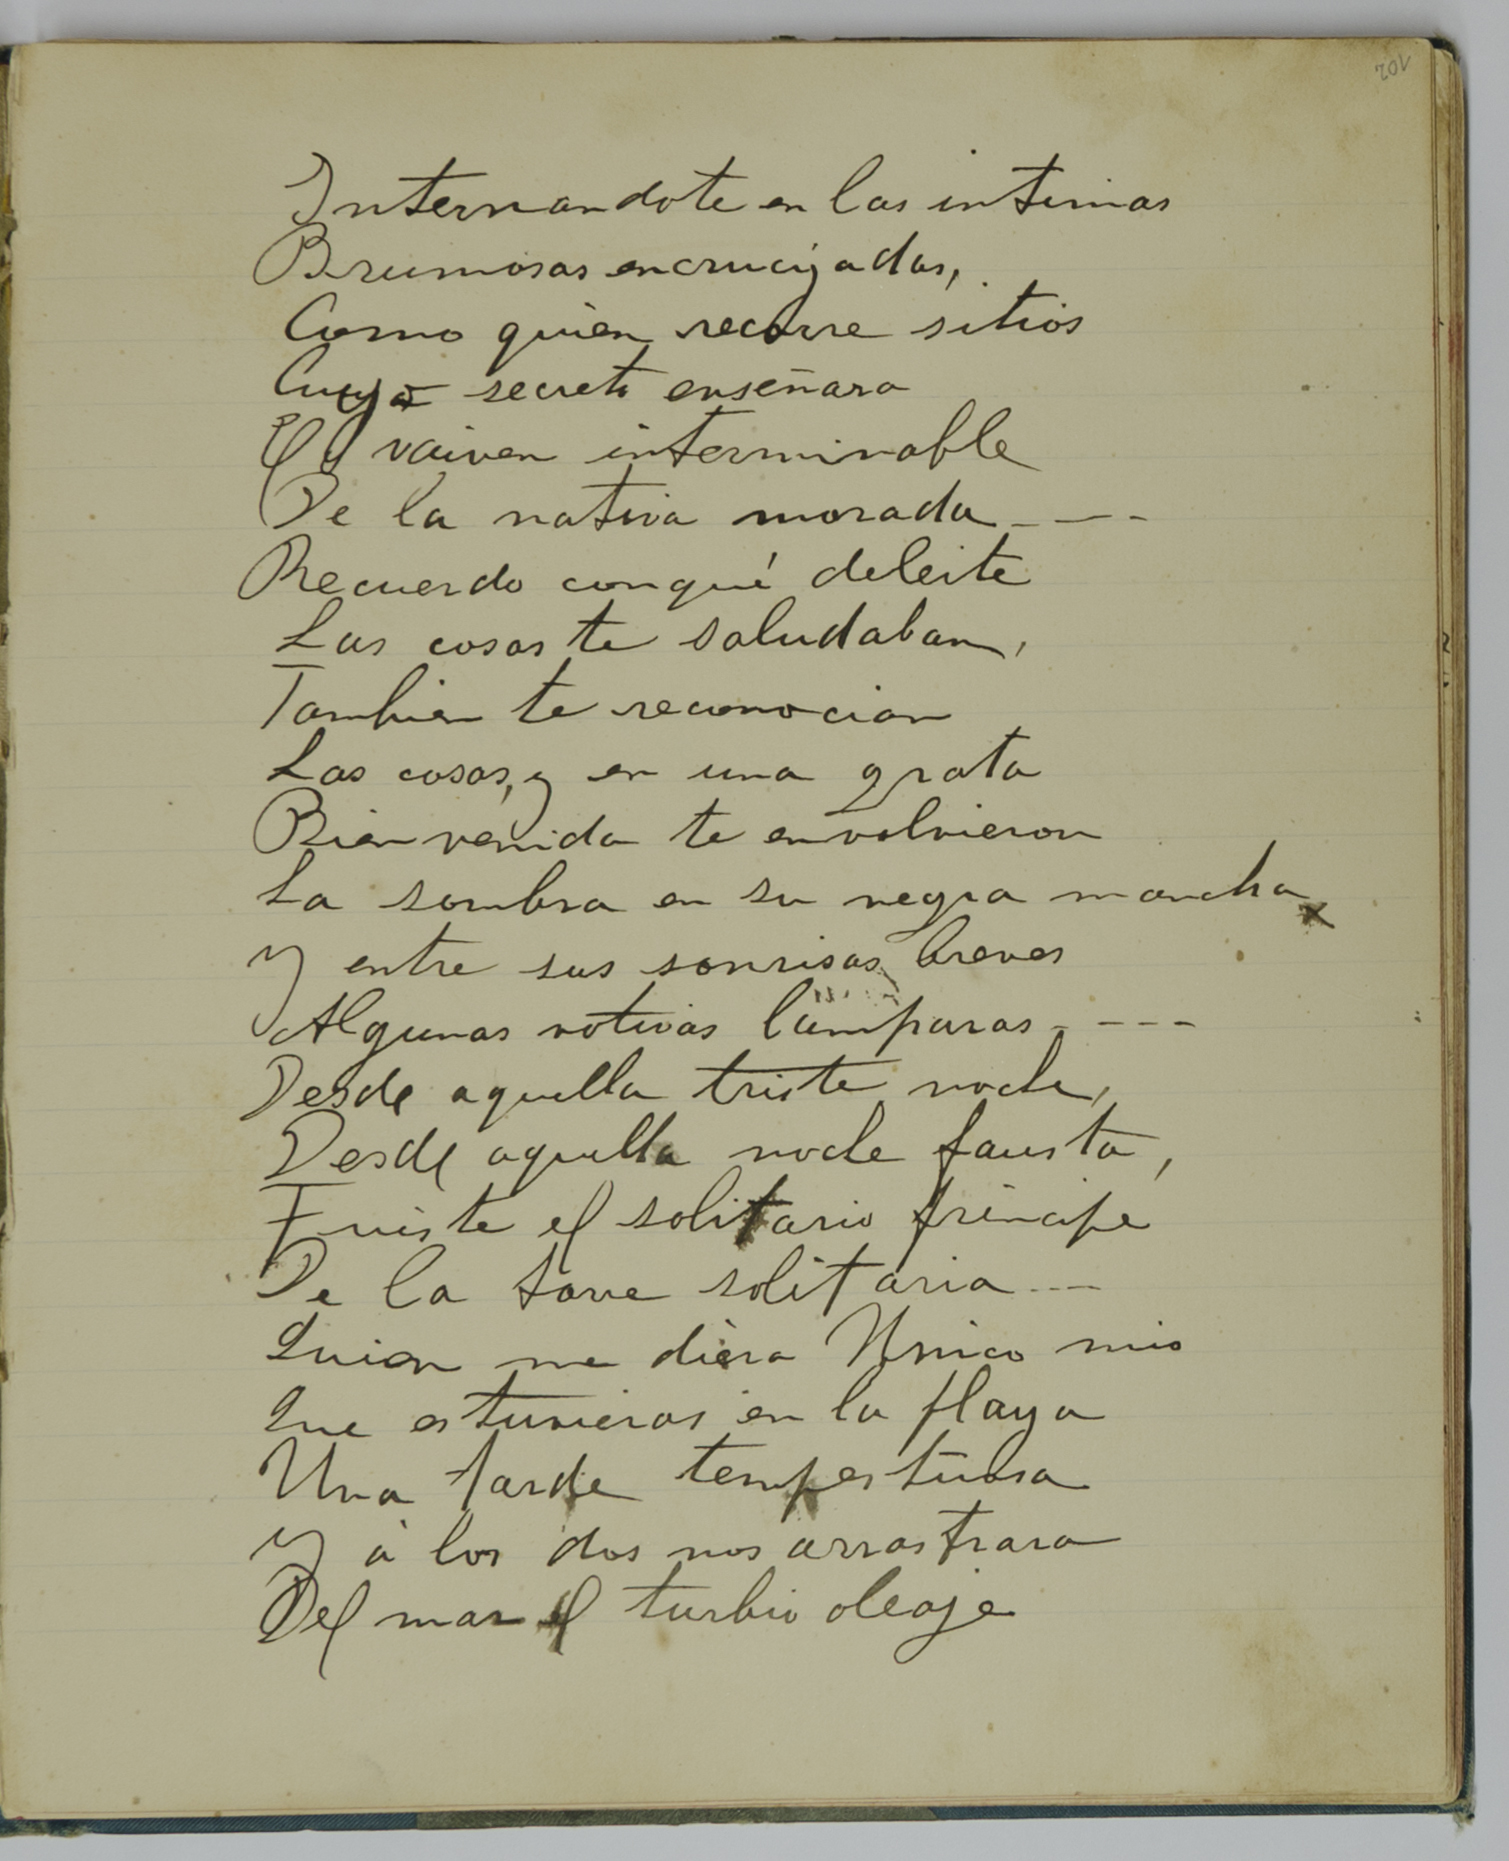 102
Internandote en las intimas
Brumosas encrucijadas,
Como quien recorre sitios
Cuyo secreto enseñara
El vaiven interminable
De la nativa morada ----
Recuerdo con qué deleite
Las cosas te saludaban,
Tambien te reconocian
Las cosas, y en una grata
Bienvenida te envolvieron
La sombra en su negra mancha
Y entre sus sonrisas breves
Algunas votivas lámparas ----
Desde aquella triste noche,
Desde aquella noche fausta,
Fuiste el solitario príncipe
De la torre solitaria ---
Quien me diera Unico mio
Que estuvieras en la playa
Una tarde tempestuosa
Y á los dos nos arrastrara
Del mar el turbio oleaje